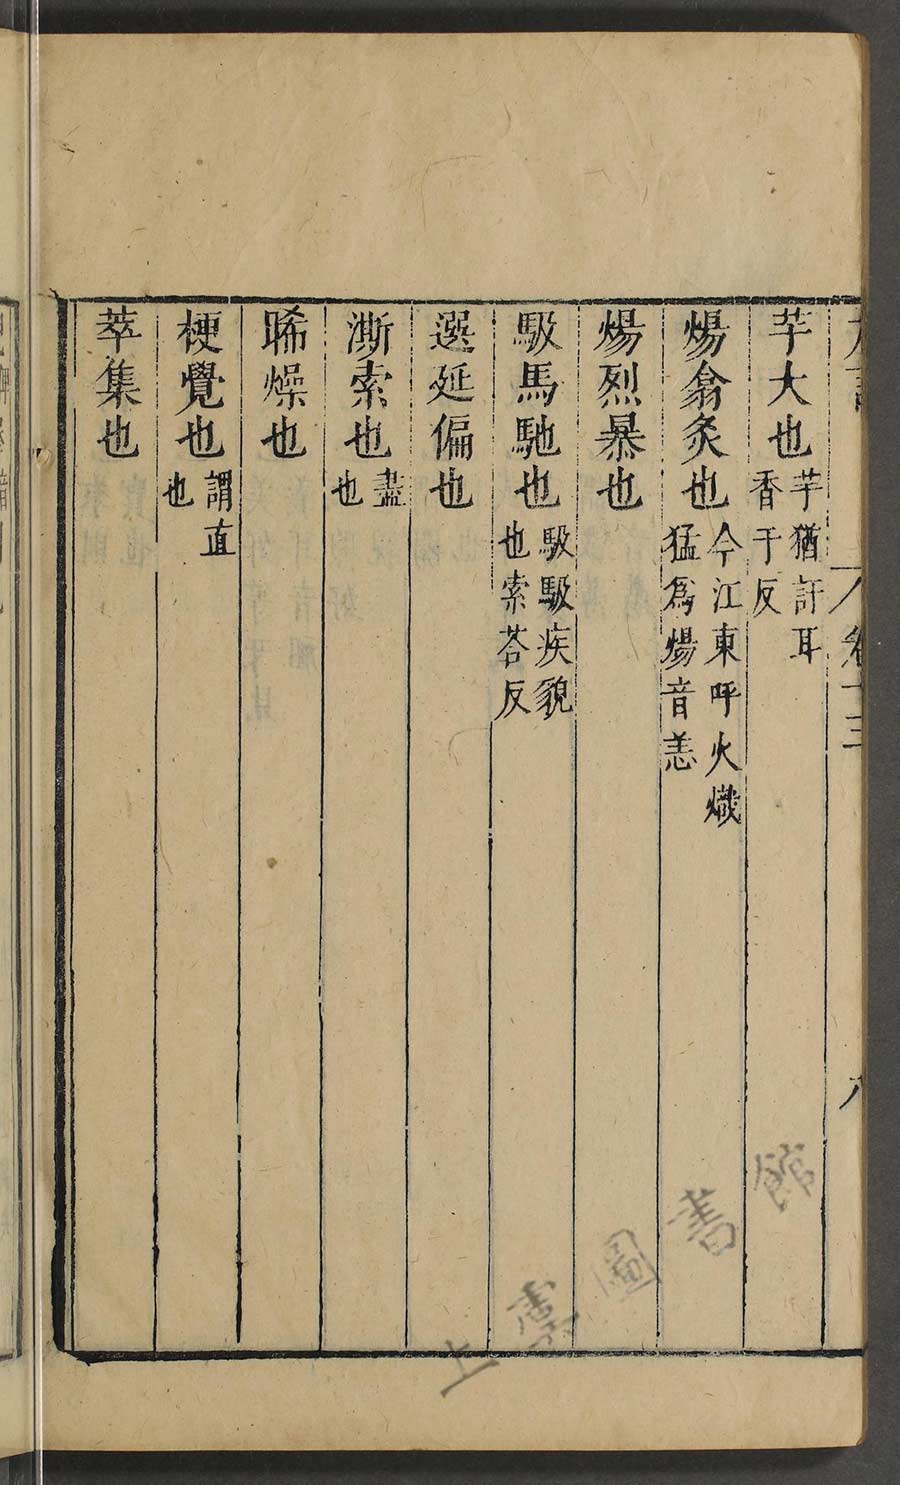 卷十三
八
芋大也芋猶訏耳香于反
煬翕炙也今江東呼火熾猛爲煬音恙
煬烈暴也
馺馬馳也馺馺疾貌也索荅反
選延偏也
澌索也盡也
晞燥也
梗覺也謂直也
萃集也
上海圖書館